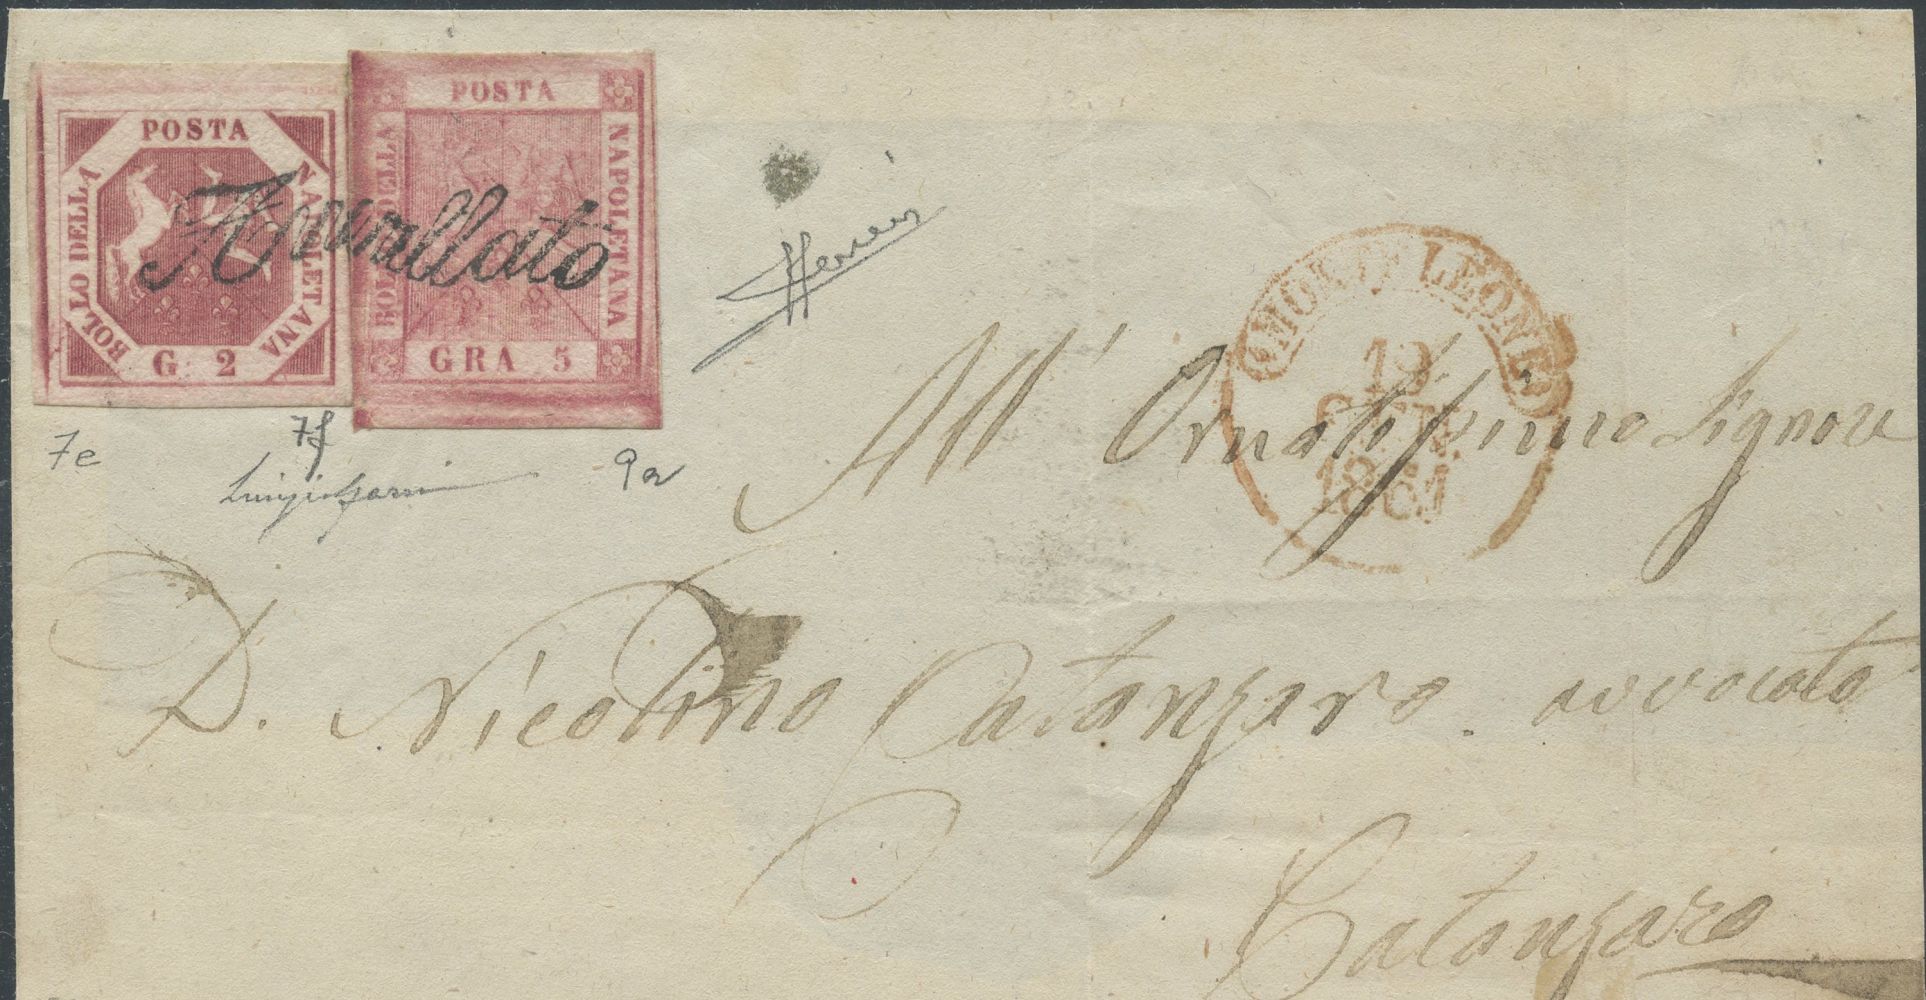 POSTA
BOLLO DELLA
NAPOLETANA
G. 2
POSTA
BOLLO DELLA
NAPOLETANA
GRA 5
Annullato
7e
7f
9a
MONTELEONE
19
GEN.
1861
All' Ornatissimo Signore
D. Nicolino Catanzaro. avvocato
Catanzaro